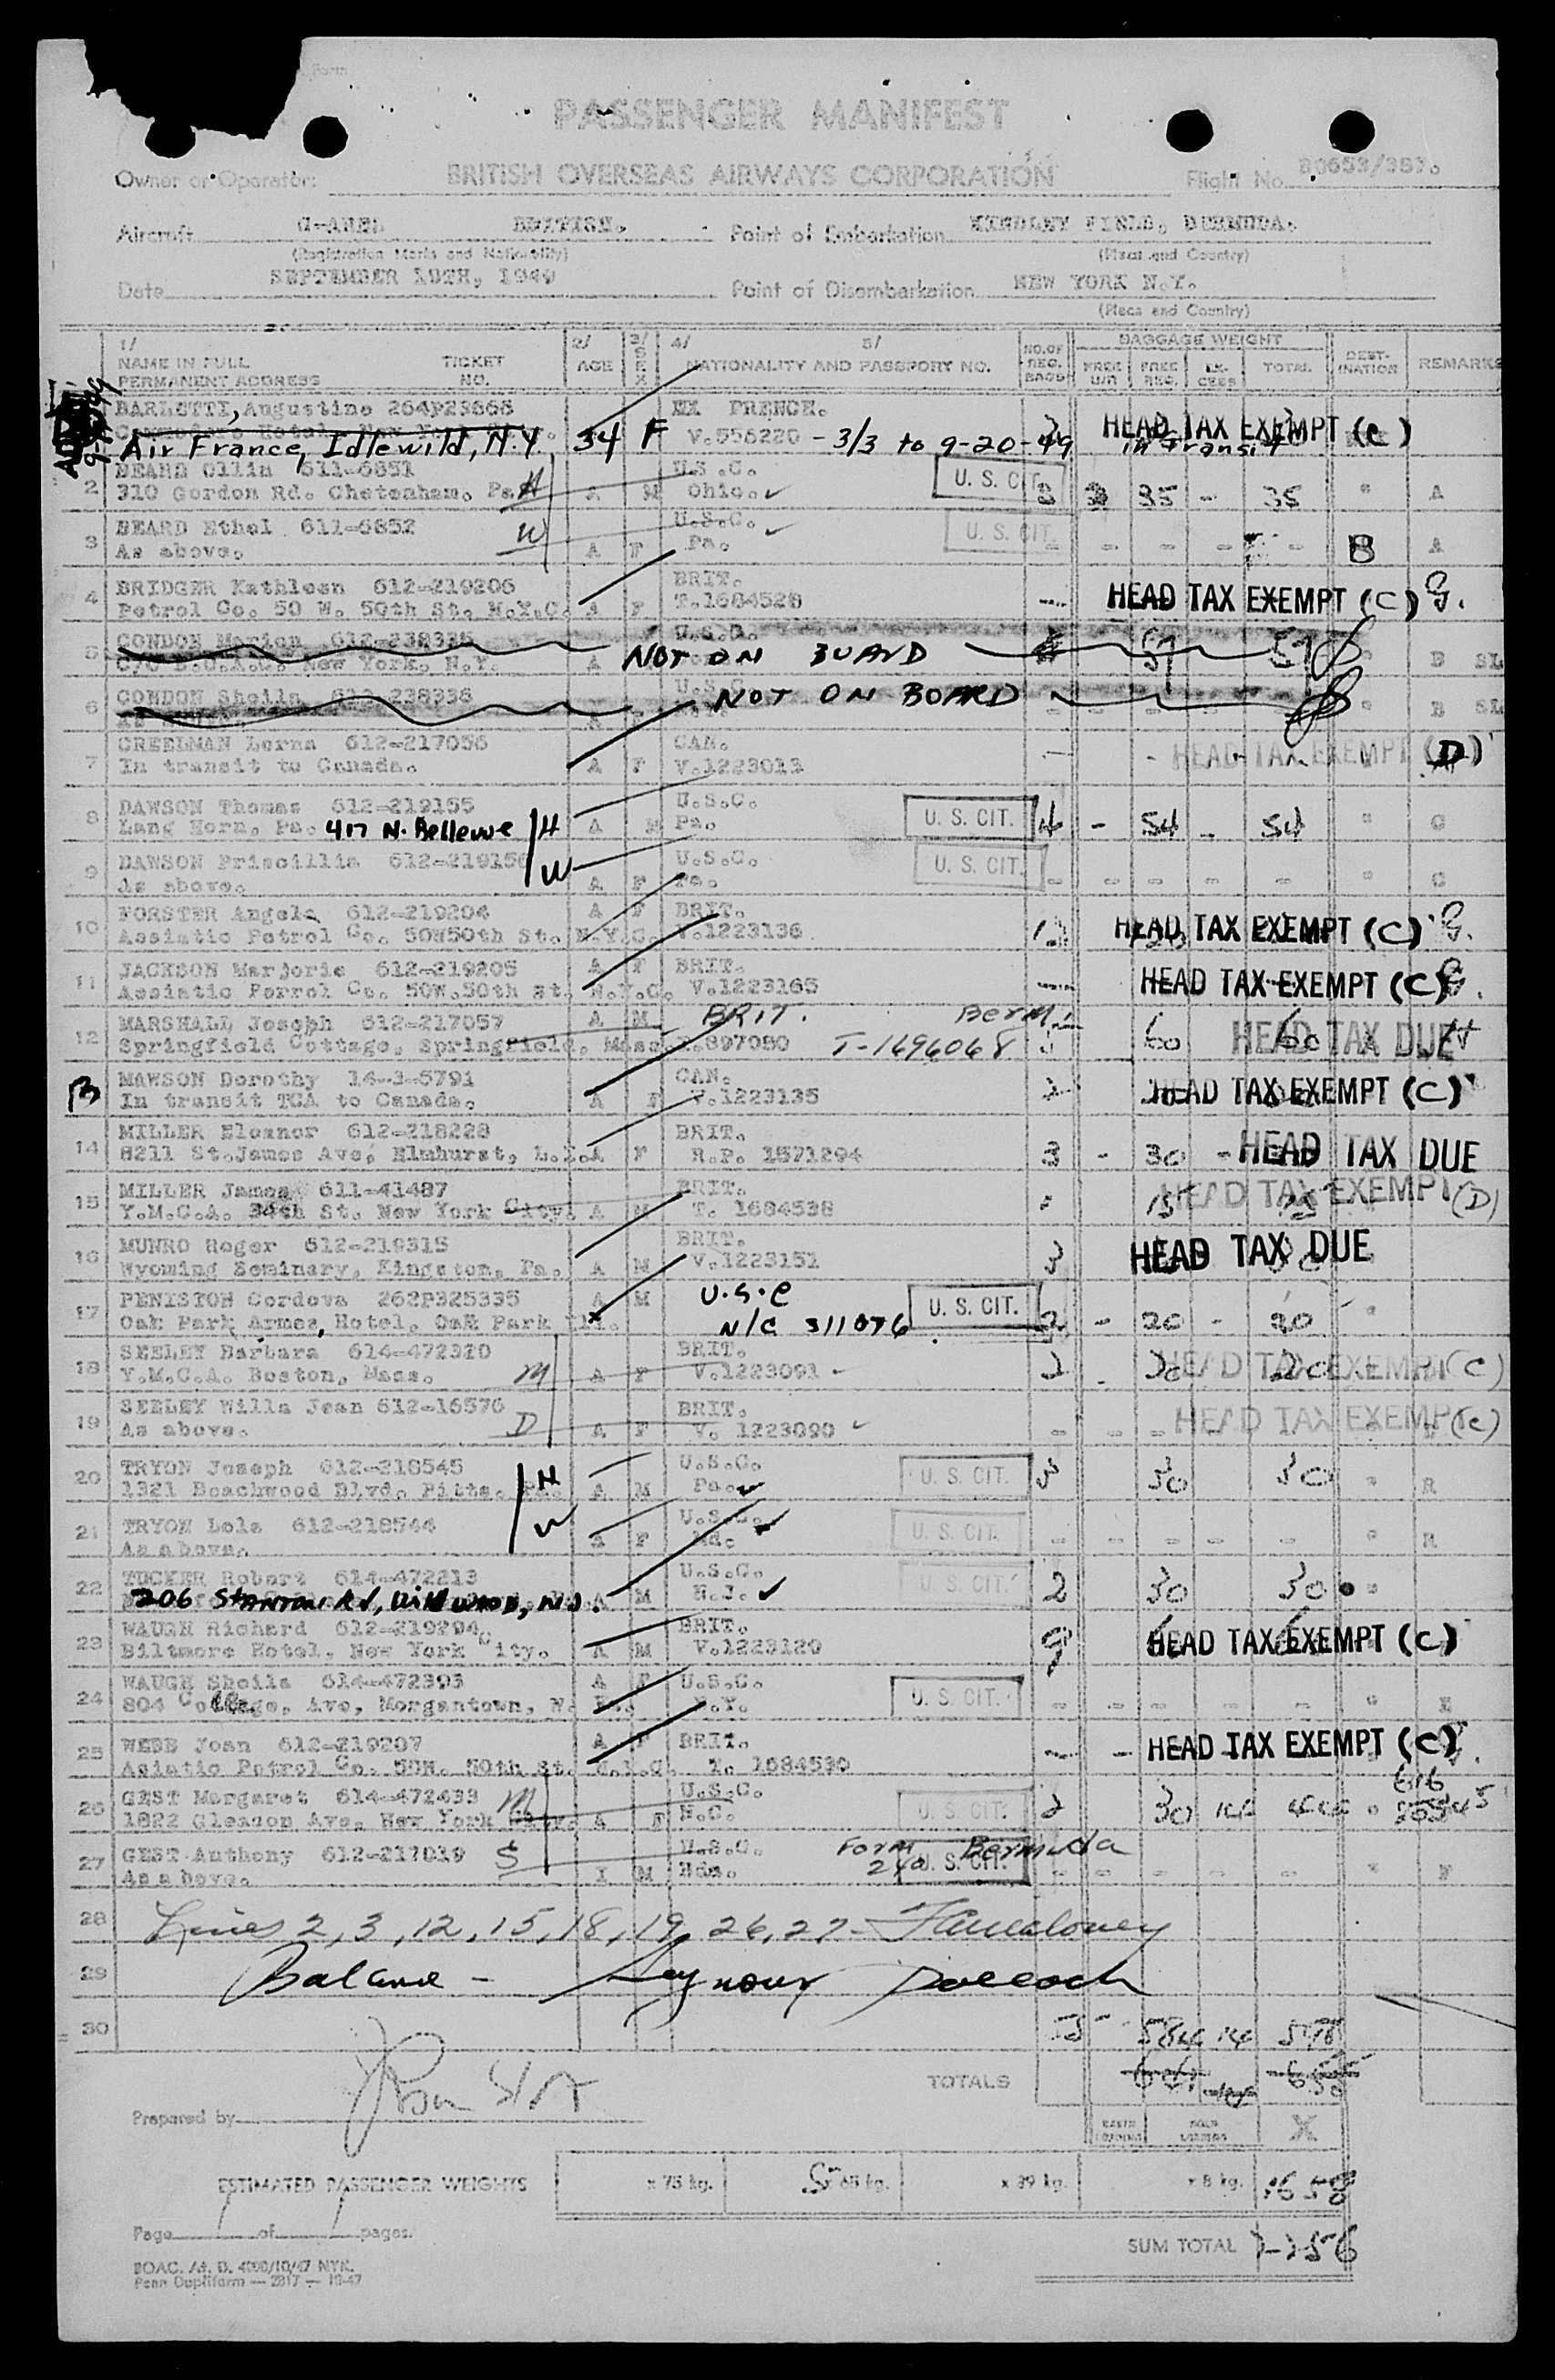 Form
PASSENGER MANIFEST
Owner or Operator: BRITISH OVERSEAS AIRWAYS CORPORATION Flight No. B0653/387.
Aircraft BRITISH. Point of Embarkation KINDLEY FIELD, BERMUDA.
(Registration Marks and Nationality) (Place and Country)
Date SEPTEMBER 19TH, 1949 Point of Disembarkation NEW YORK N.Y.
(Place and Country)
1/ NAME IN FULL PERMANENT ADDRESS TICKET NO. 2/ AGE 3/ SEX 4/ 5/ NATIONALITY AND PASSPORT NO. NO.OF REG. BAGS BAGGAGE WEIGHT FREE U/R FREE REG. EX-CESS TOTAL DEST-INATION REMARKS
BARLETTI, Augustine 264P23868 EX FRENCH.
Air France, Idlewild, N.Y. 34 F V.556220 - 3/3 to 9-20-49 HEAD TAX EXEMPT (C) in Transit
2 BEARD Ollin 611-6851 U.S.C. U.S. CIT.
310 Gordon Rd. Chetenham. Pa. H A M Ohio. 35 - 35 " A
3 BEARD Ethel 611-6852 W U.S.C. U.S. CIT.
As above. A F Pa. - - - - - B A
4 BRIDGER Kathleen 612-219206 BRIT.
Petrol Co. 50 W. 50th St. N.Y.C. A F T.1684528 HEAD TAX EXEMPT (C) G.
5 CONDON Marion 612-238335 U.S.C.
New York, N.Y. A NOT ON BOARD 59 59 B SL
6 CONDON Sheila 612-238336 U.S.C. NOT ON BOARD
- - - - - " B SL
7 CREELMAN Lorna 612-217056 CAN.
In transit to Canada. A F V.1223013 HEAD TAX EXEMPT (D)
8 DAWSON Thomas 612-219155 U.S.C.
Lang Horn, Pa. 417 N. Bellevue H A M Pa. U.S. CIT. 4 - 54 - 54 " G
9 DAWSON Priscillia 612-219156 W U.S.C. U.S. CIT.
As above. A F Pa. - - - - - " G
10 FORSTER Angela 612-219204 A F BRIT.
Assiatic Petrol Co. 50W50th St. N.Y.C. V.1223136 HEAD TAX EXEMPT (C) G.
11 JACKSON Marjorie 612-219205 A F BRIT.
Assiatic Perrol Co. 50W.50th St. N.Y.C. V.1223165 HEAD TAX EXEMPT (C) G.
12 MARSHALL Joseph 612-217057 A M BRIT. Berm.
Springfield Cottage, Springfield, Mass. T.897080 T-1696068 60 60 HEAD TAX DUE
13 MAWSON Dorothy 14-3-5791 CAN.
In transit TCA to Canada. A F V.1223135 HEAD TAX EXEMPT (C)
14 MILLER Eleanor 612-218228 BRIT.
8211 St.James Ave, Elmhurst, L.I. A F R.P. 1571294 3 - 30 - HEAD TAX DUE
15 MILLER James 611-41487 BRIT.
Y.M.C.A. 34th St. New York City. A M T. 1684538 15 HEAD TAX EXEMPT (D)
16 MUNRO Roger 612-219315 BRIT.
Wyoming Seminary, Kingston, Pa. A M V.1223151 3 HEAD TAX DUE
17 PENISTON Cordova 262P325335 A M U.S.C
Oak Park Armes, Hotel, Oak Park Ill. N/C 311076 U.S. CIT. 2 - 20 - 20 "
18 SEELEY Barbara 614-472320 BRIT.
Y.M.C.A. Boston, Mass. M A F V.1223091 2 20 20 HEAD TAX EXEMPT (C)
19 SEELEY Willa Jean 612-16576 BRIT.
As above. D A F V. 1223090 - - - HEAD TAX EXEMPT (C)
20 TRYON Joseph 612-218545 H U.S.C.
1321 Beachwood Blvd. Pitts. Pa. A M Pa. U.S. CIT. 3 30 30 " R
21 TRYON Lola 612-218544 W U.S.C. U.S. CIT.
As above. A F Md. - - - - - " R
22 TUCKER Robert 614-472213 U.S.C.
206 Stanton Rd, Wildwood, N.J. A M N.J. U.S. CIT. 2 30 30 "
23 WAUGH Richard 612-219294 BRIT.
Biltmore Hotel, New York City. A M V.1223120 HEAD TAX EXEMPT (C)
24 WAUGH Sheila 614-472393 A F U.S.C.
804 College, Ave, Morgantown, W. N.Y. U.S. CIT. - - - - " E
25 WEBB Joan 612-219207 A F BRIT.
Asiatic Petrol Co. 50W. 50th St. N.Y.C. T. 1684530 - - HEAD TAX EXEMPT (C)
26 GEST Margaret 614-472433 M U.S.C. 616
1822 Gleason Ave. New York City. A F N.C. U.S. CIT. 2 30 14 44 "
27 GEST Anthony 612-217019 S U.S.C. Form 240 Bermuda
As above. I M Bda. U.S. CIT. - - - - " F
28 Lines 2, 3, 12, 15, 18, 19, 26, 27 -
29 Balance - Seymour
30 584 14 598
TOTALS
Prepared by
ESTIMATED PASSENGER WEIGHTS x 75 kg. x 65 kg. x 39 kg. x 8 kg. 1658
Page 1 of 1 pages.
SUM TOTAL 2256
BOAC. Ad. D. 4000/10/47 NYK.
Penn Dupliform — 2817 — 10-47